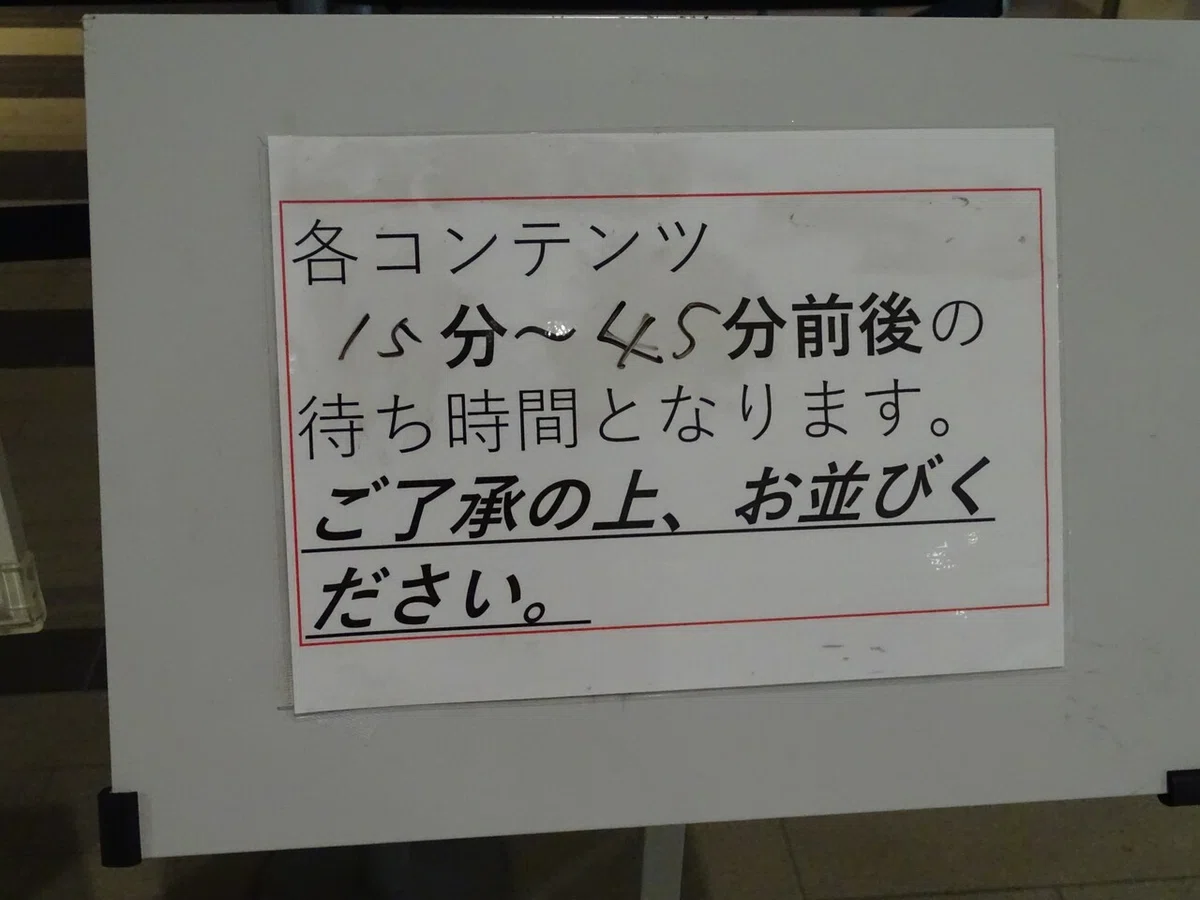 各コンテンツ
15分～45分前後の
待ち時間となります。
ご了承の上、お並びく
ださい。